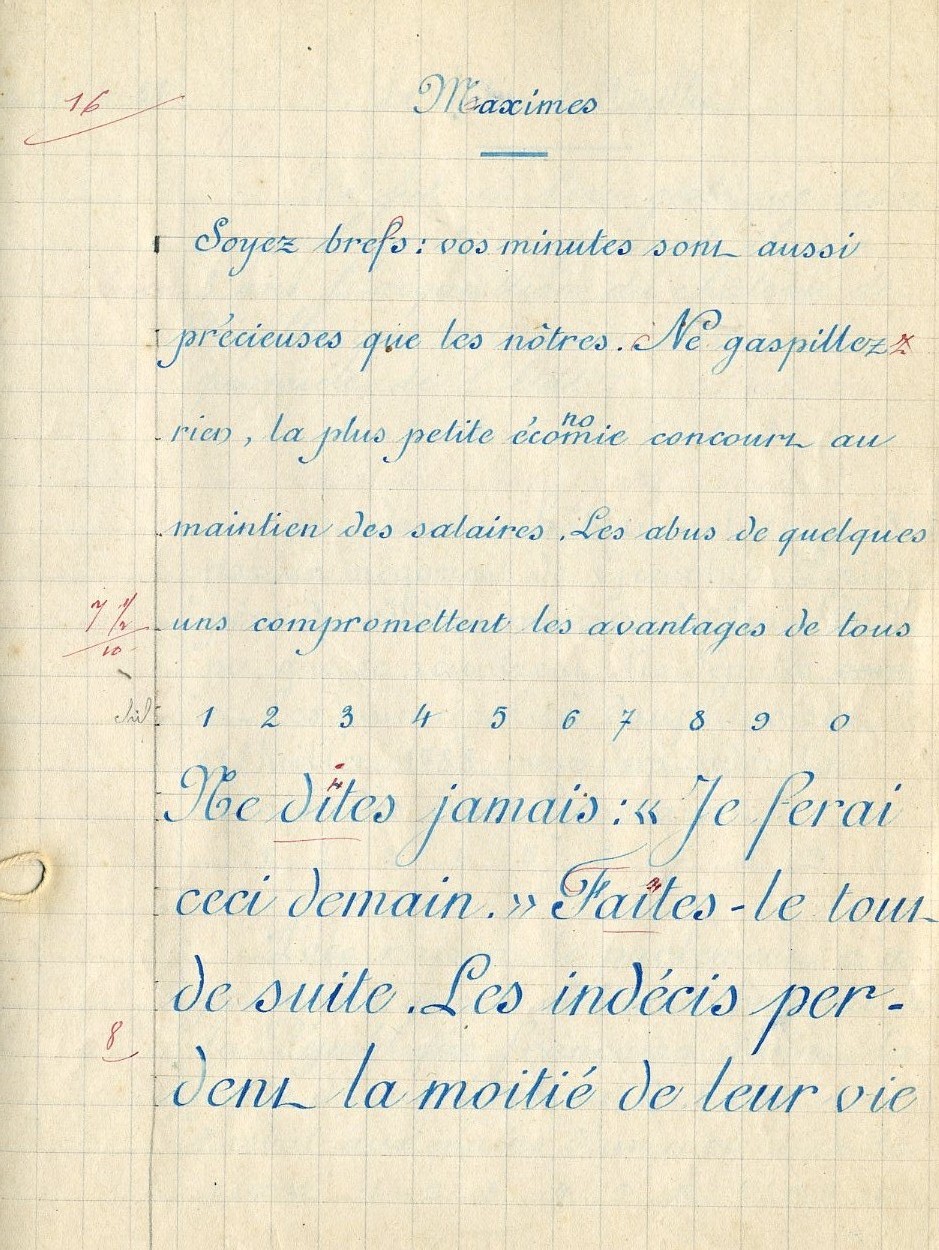 16
Maximes
Soyez brefs : vos minutes sont aussi
précieuses que les nôtres. Ne gaspillez
rien, la plus petite économie concourt au
maintien des salaires. Les abus de quelques
uns compromettent les avantages de tous
7 1/2
10
1 2 3 4 5 6 7 8 9 0
Ne dites jamais : « Je ferai
ceci demain. » Faites-le tout
de suite. Les indécis per-
8
dent la moitié de leur vie